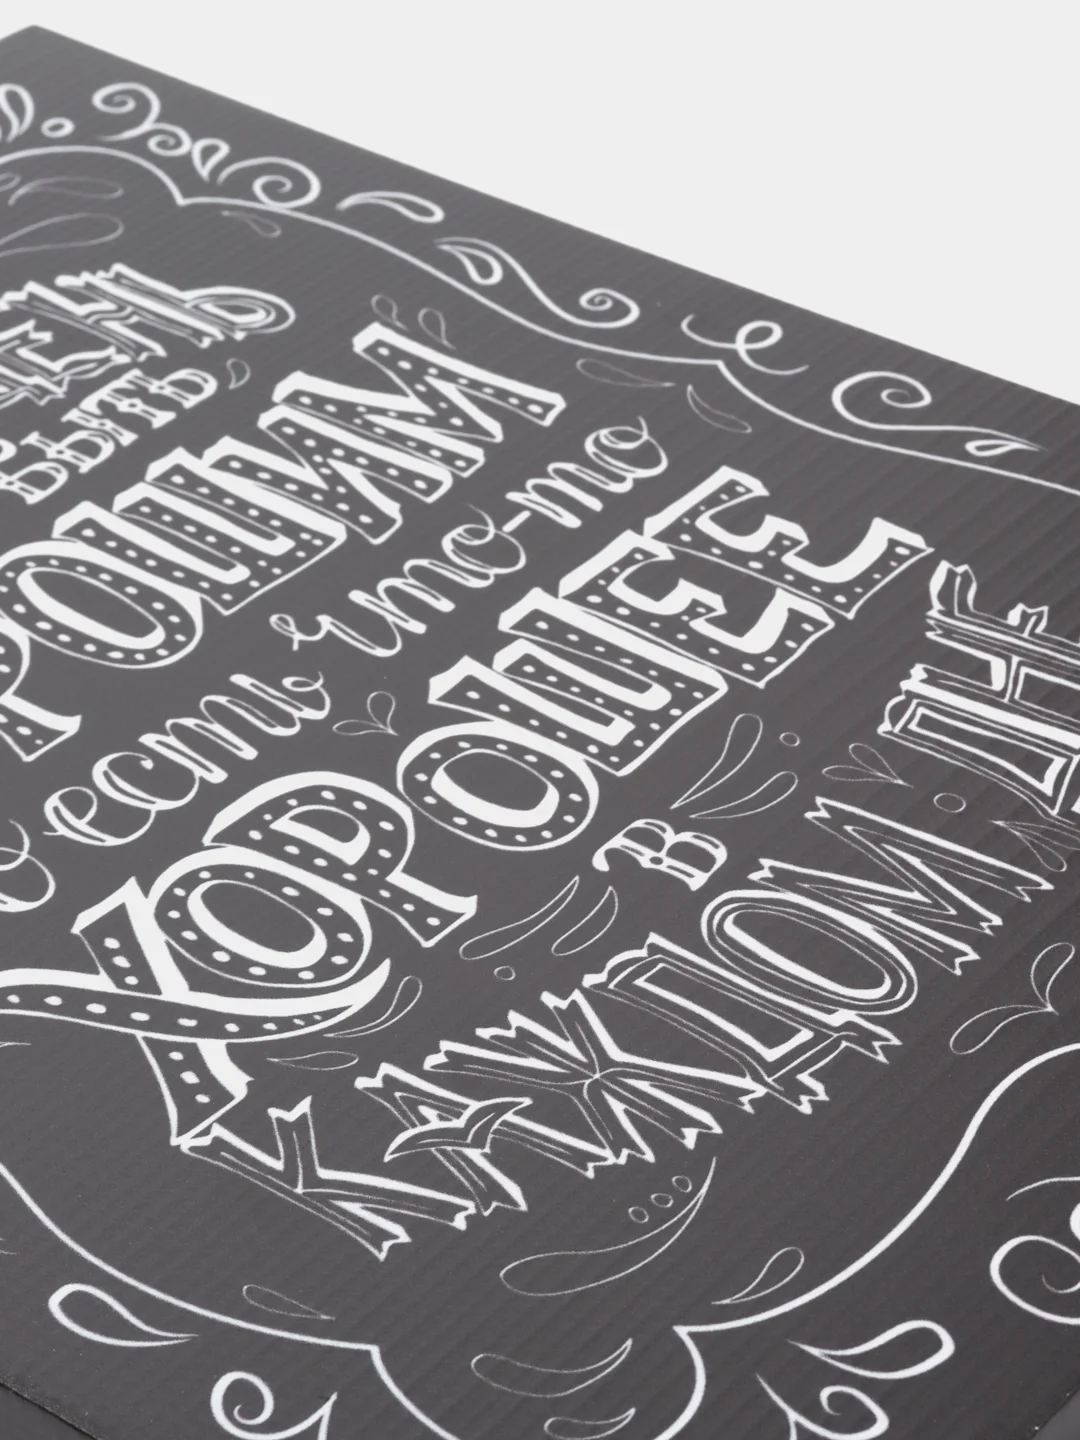 ЕНЬ
БЫТЬ
РОШИМ
о есть что-то
ХОРОШЕЕ
В
КАЖДОМ ДНЕ